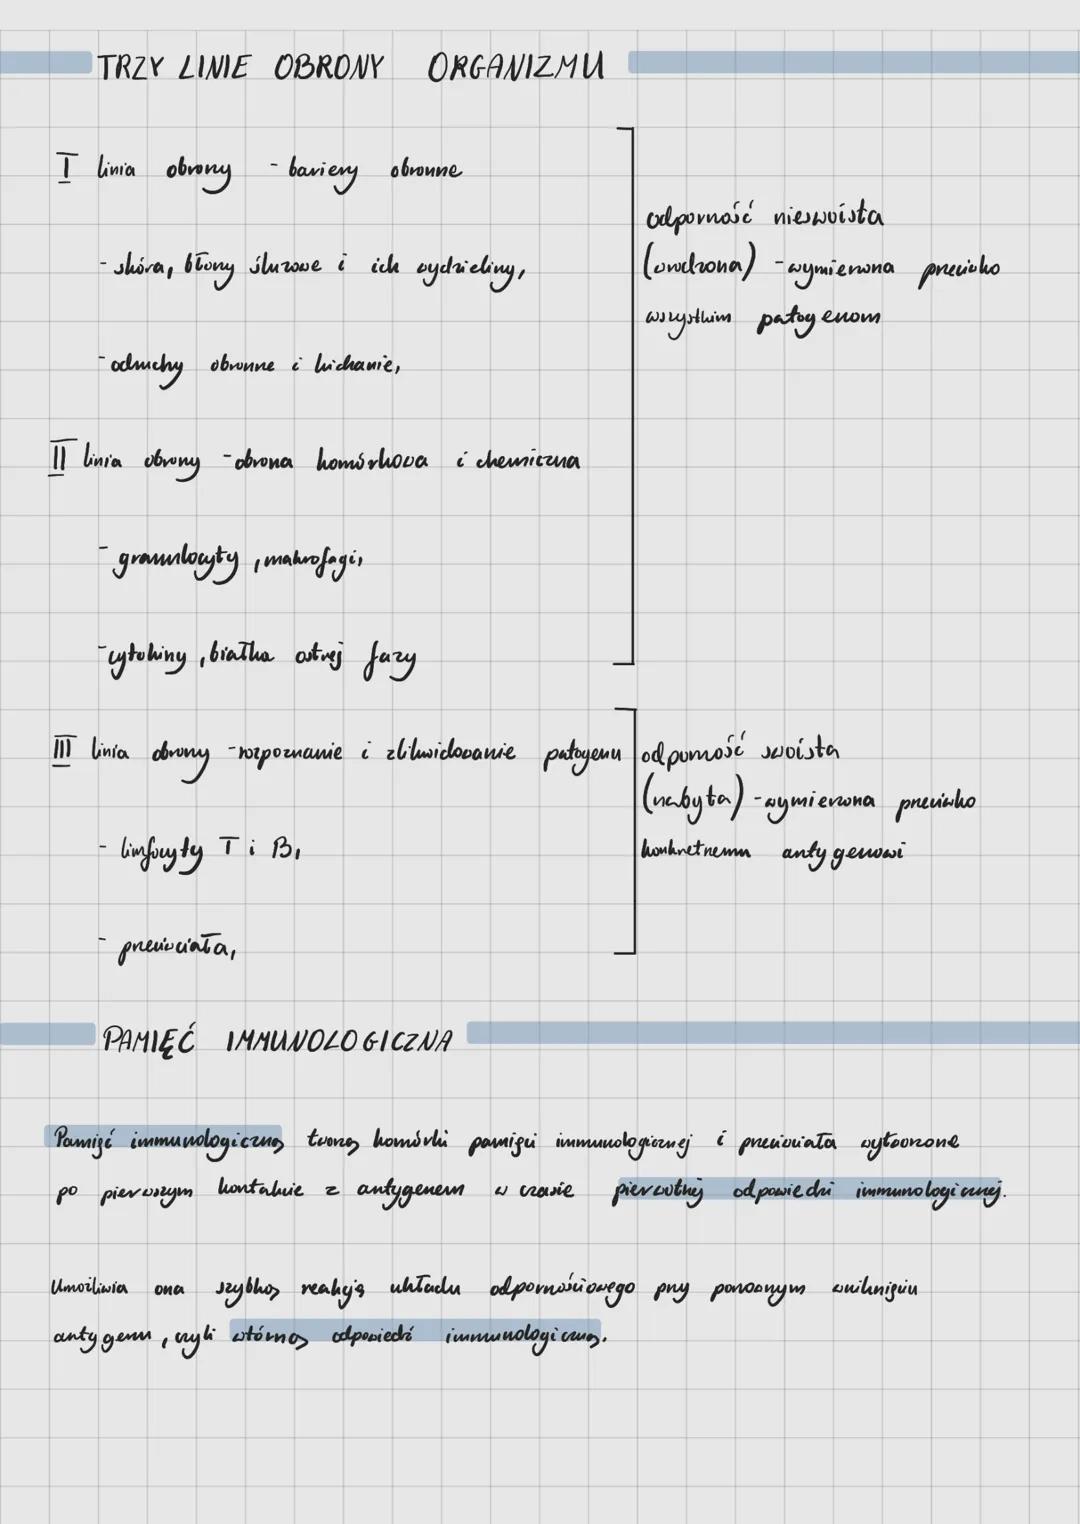 TRZY LINIE OBRONY ORGANIZMU
I linia obrony - bariery obronne
- skóra, błony śluzowe i ich wydzieliny,
- odruchy obronne i kichanie,
odporność nieswoista
(wrodzona) - wymierzona przeciwko
wszystkim patogenom
II linia obrony - obrona komórkowa i chemiczna
- granulocyty, makrofagi,
- cytokiny, białka ostrej fazy
III linia obrony - rozpoznanie i zlikwidowanie patogenu
- limfocyty T i B,
- przeciwciała,
odporność swoista
(nabyta) - wymierzona przeciwko
konkretnemu antygenowi
PAMIĘĆ IMMUNOLOGICZNA
Pamięć immunologiczną tworzą komórki pamięci immunologicznej i przeciwciała wytworzone
po pierwszym kontakcie z antygenem w czasie pierwotnej odpowiedzi immunologicznej.
Umożliwia ona szybką reakcję układu odpornościowego przy ponownym wniknięciu
antygenu, czyli wtórną odpowiedź immunologiczną.